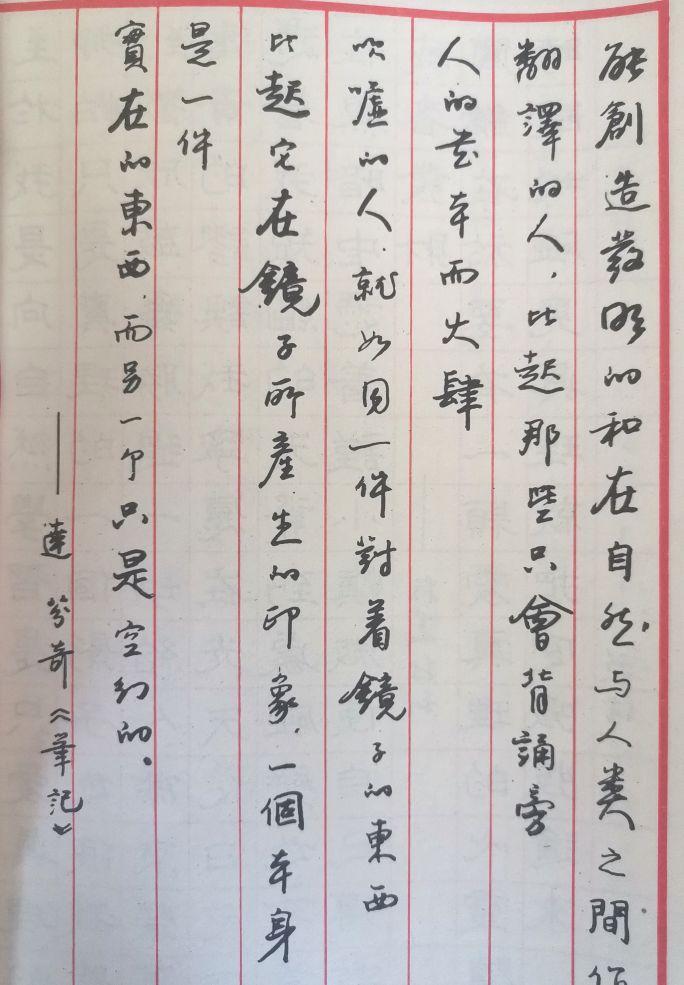 能創造發明的和在自然与人类之間作
翻譯的人，比起那些只會背誦旁
人的书本而大肆
吹嘘的人，就如同一件對着鏡子的東西
比起它在鏡子所產生的印象，一個本身
是一件
實在的東西，而另一个只是空幻的。
——達芬奇《筆記》